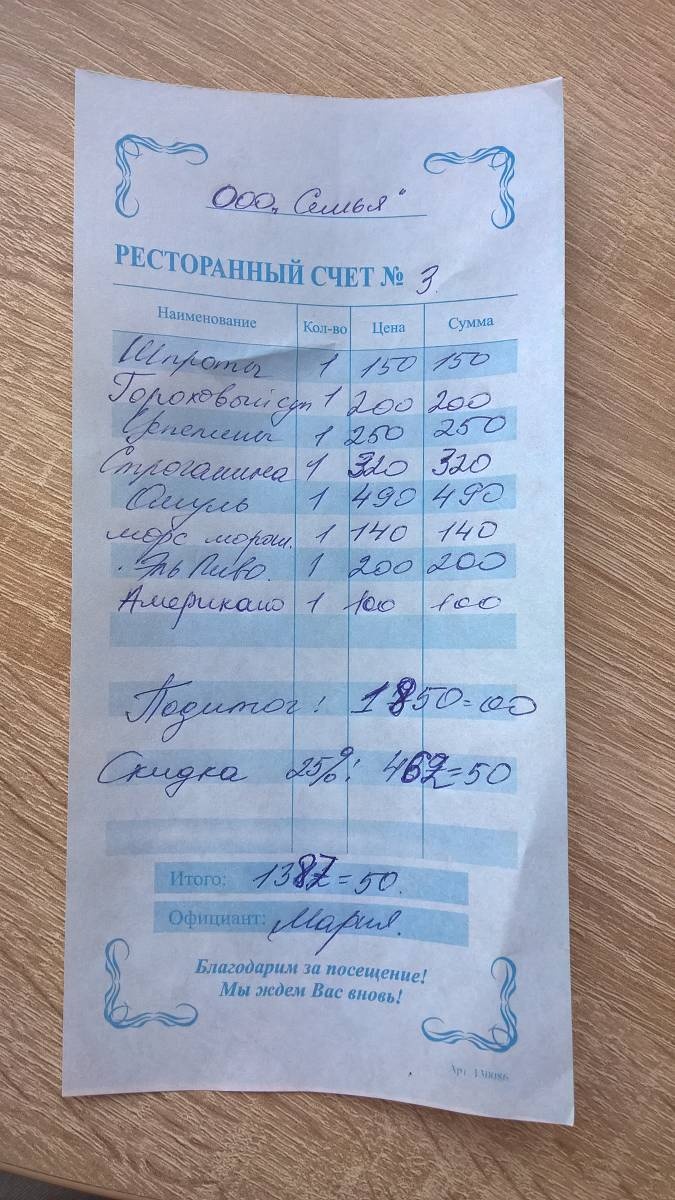 ООО „Семья"
РЕСТОРАННЫЙ СЧЕТ № 3.
Наименование Кол-во Цена Сумма
Шпроты 1 150 150
Гороховый суп 1 200 200
1 250 250
Строганина 1 320 320
Омуль 1 490 490
морс морош. 1 140 140
Эль Пиво. 1 200 200
Американо 1 100 100
Подитог: 1850=00
Скидка 25%: 462=50
Итого: 1387=50.
Официант: Мария.
Благодарим за посещение!
Мы ждем Вас вновь!
Арт. 130086